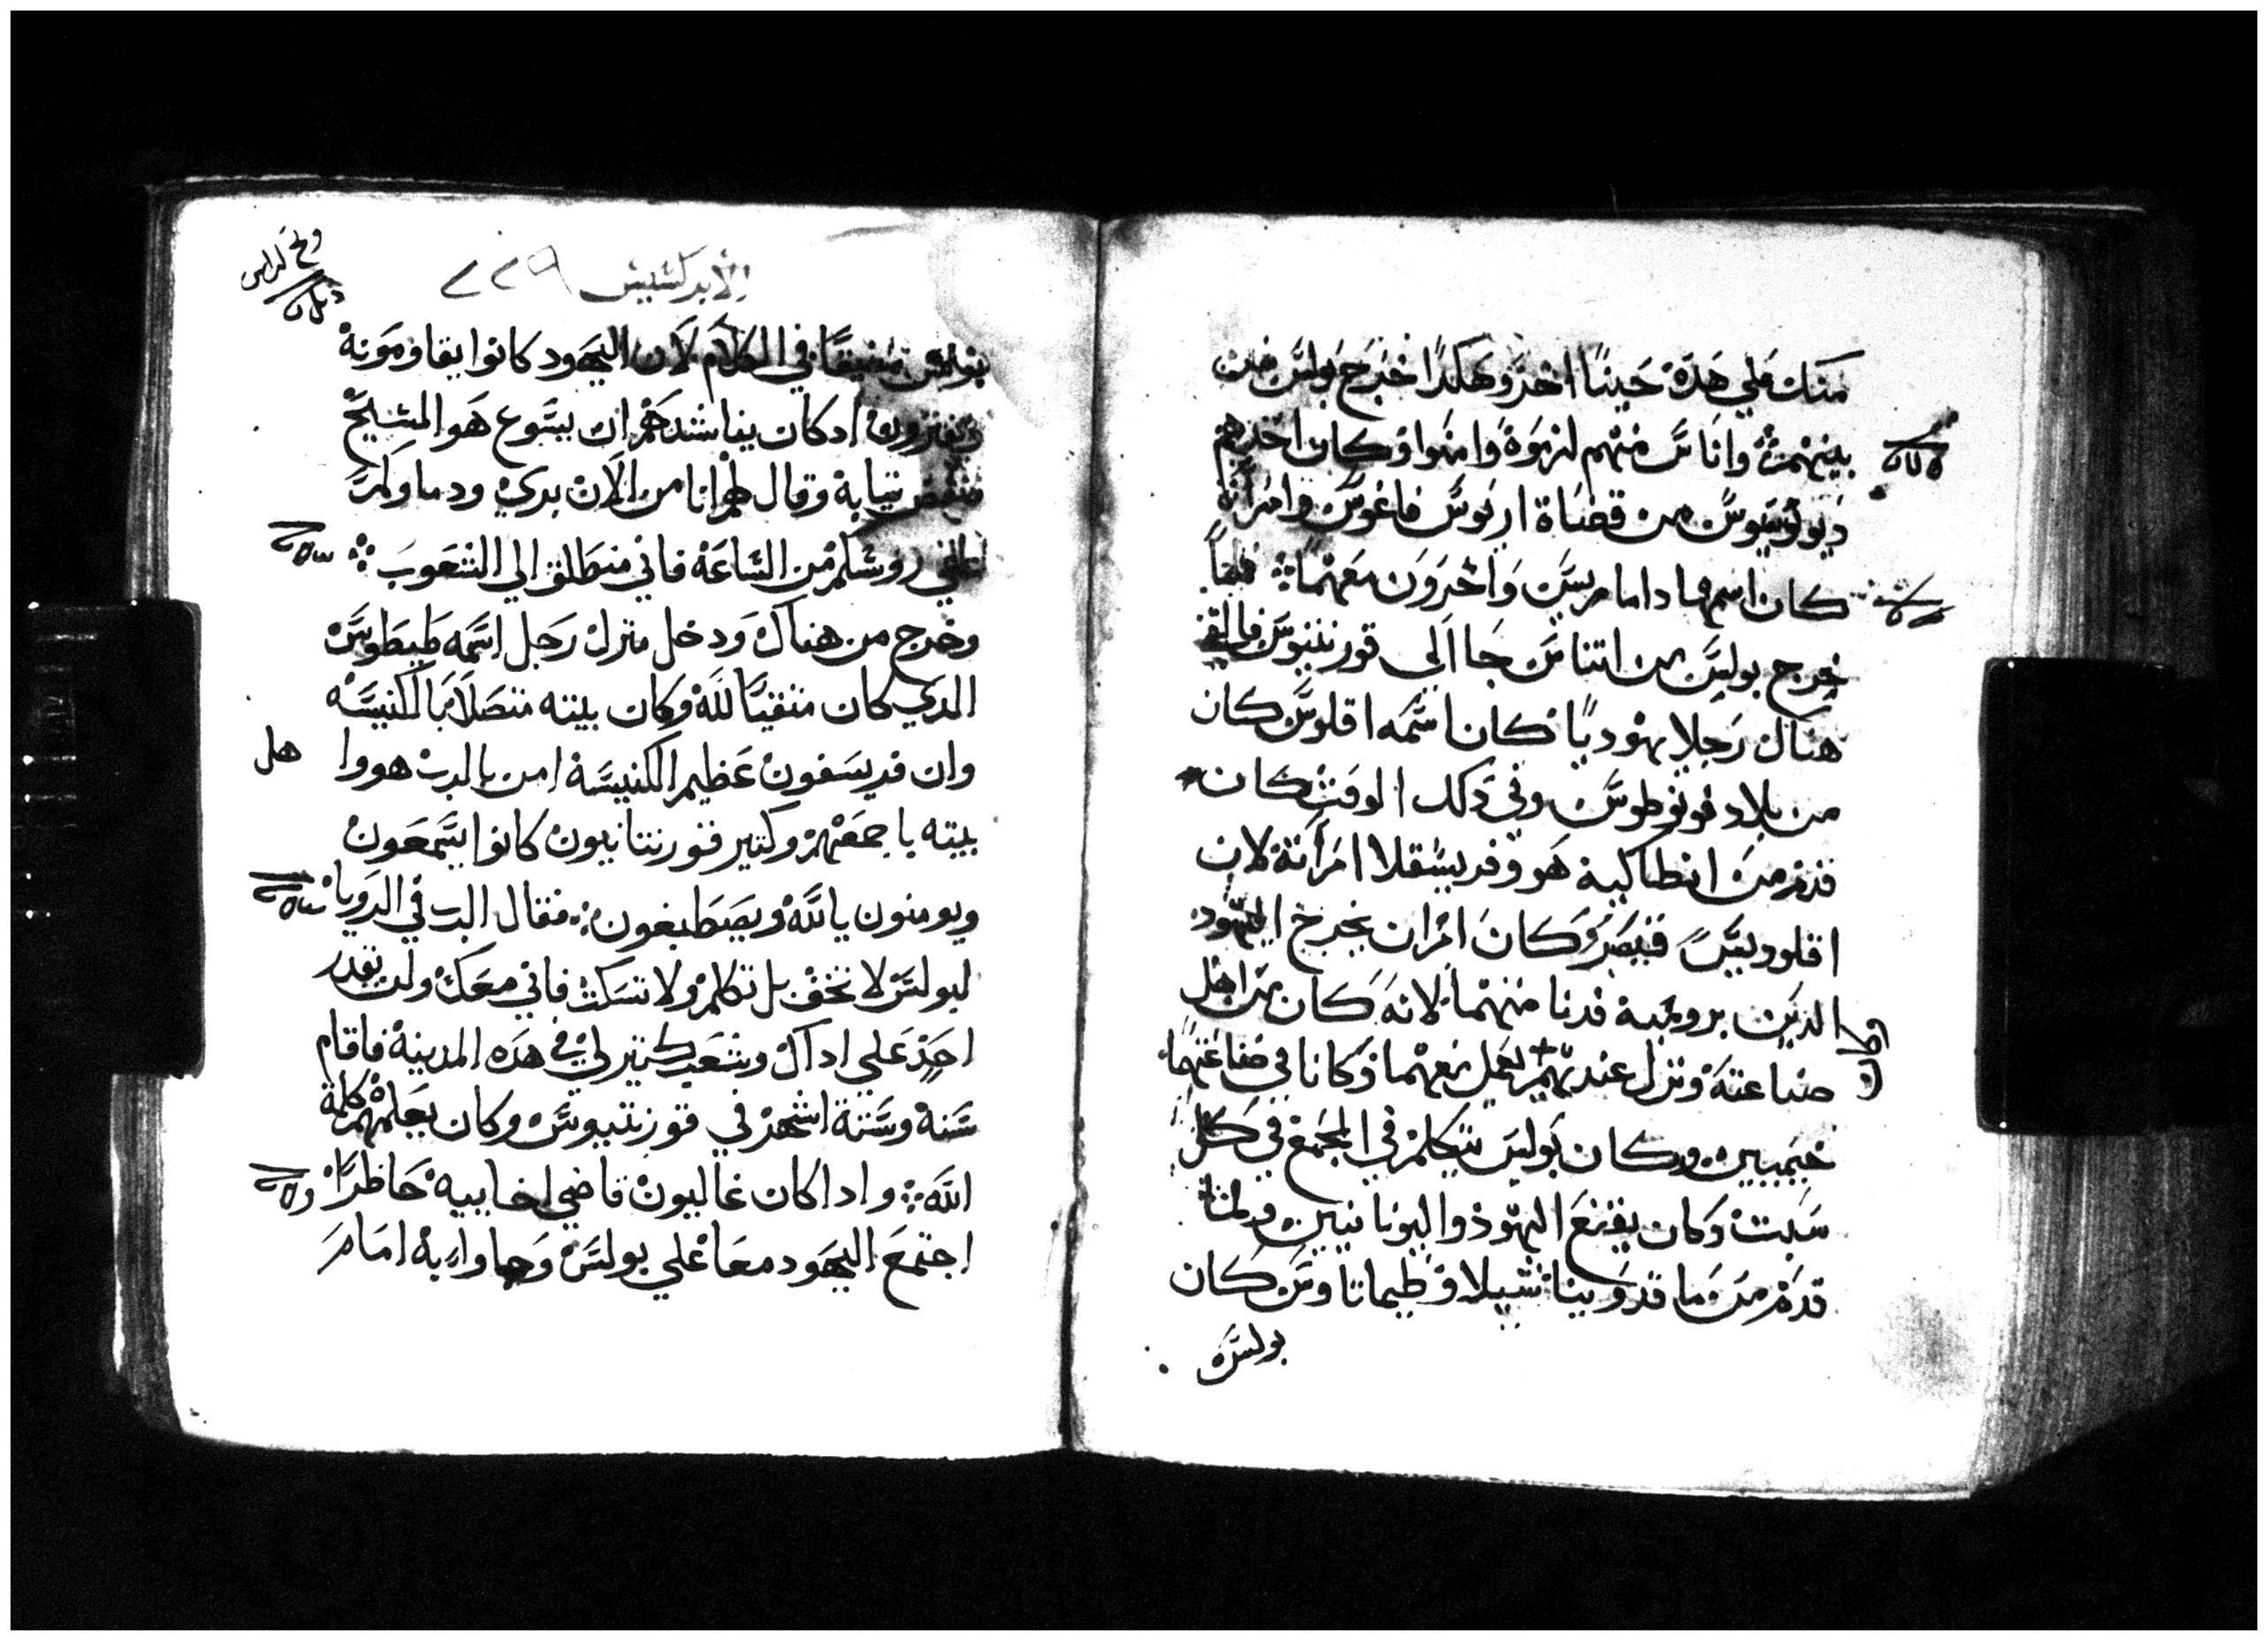 منك علي هده حينا اخر وهكدا خرج بولس من
بينهم واناس منهم لزموه وامنوا وكان احدهم
ديونوسيوس من قضاة اريوس فاغوس وامراة
كان اسمها دامامريس واخرون معهما فلما
خرج بولس من اتناس جا الى قورنتيوس فالتقي
هناك رجلا يهوديا كان اسمه اقلوس كان
من بلاد فونوطوس وفي دلك الوقت كان
قدم من انطاكيه هو وفريسقلا امراته لان
اقلوديس قيصر كان امر ان يخرج اليهود
الدين بروميه فدنا منهما لانه كان من اهل
صناعته ونزل عندهم يعمل معهما وكانا في صناعتهما
خيميين وكان بولس يتكلم في المجمع في كل
سبت وكان يقنع اليهود واليونانيين ولما
قدم من ماقدونيا شيلا وطيماتاوس كان
بولس
الابركسيس ٢٢٩
بولس مضيقا في الكلام لان اليهود كانوا يقاومونه
ويفترون ادكان يناشدهم ان يسوع هو المسيح
فنفض تيابه وقال لهم انا من الان بري ودماوكم
روسكم من الساعة فاني منطلق الي الشعوب
وخرج من هناك ودخل منزل رجل اسمه طيطوس
الدي كان متقيا لله وكان بيته متصلا بالكنيسه
وان قريسفون عظيم الكنيسة امن بالرب هووا هل
بيته باجمعهم وكتير قورنتانيون كانوا يسمعون
ويومنون بالله ويصطبغون فقال الرب في الرويا
لبولس لا تخف بل تكلم ولا تسكت فاني معك ولن يقدر
احد علي اداك وشعب كتير لي في هده المدينة فاقام
سنه وستة اشهر في قورنتيوس وكان يعلمهم كلمة
الله وادا كان غاليون قاضي اخاييه حاظرا
اجتمع اليهود معا علي بولس وجاوا به امام